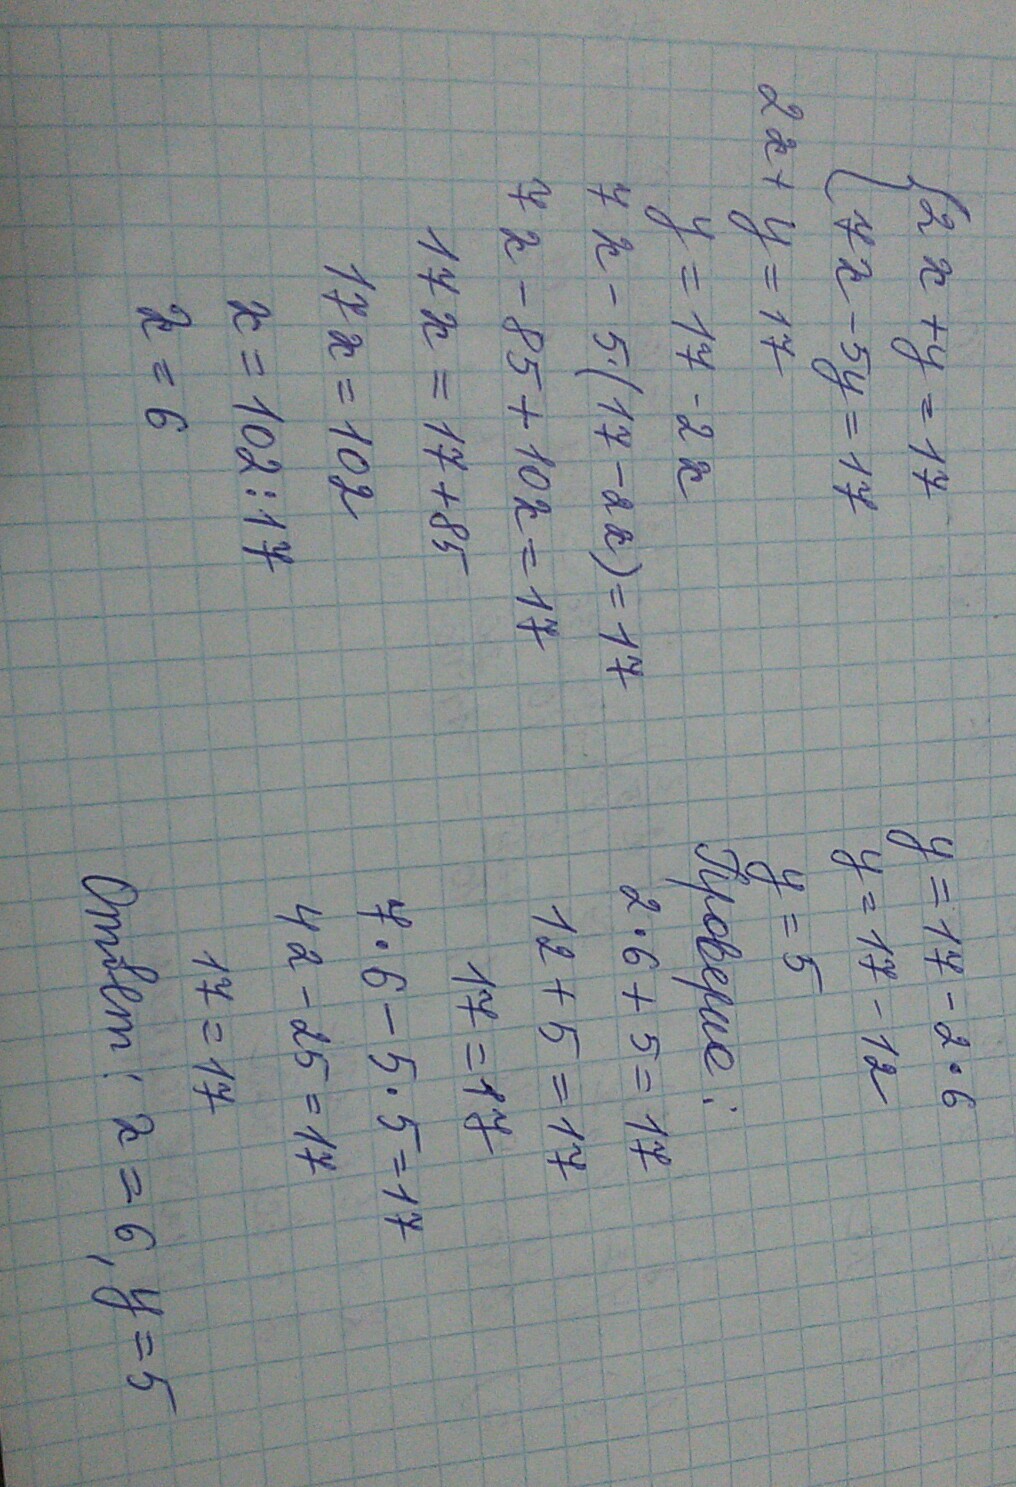 {2x+y=17
{7x-5y=17
2x+y=17
y=17-2x
7x-5·(17-2x)=17
7x-85+10x=17
17x=17+85
17x=102
x=102:17
x=6
y=17-2·6
y=17-12
y=5
Проверие:
2·6+5=17
12+5=17
17=17
7·6-5·5=17
42-25=17
17=17
Ответ: x=6, y=5